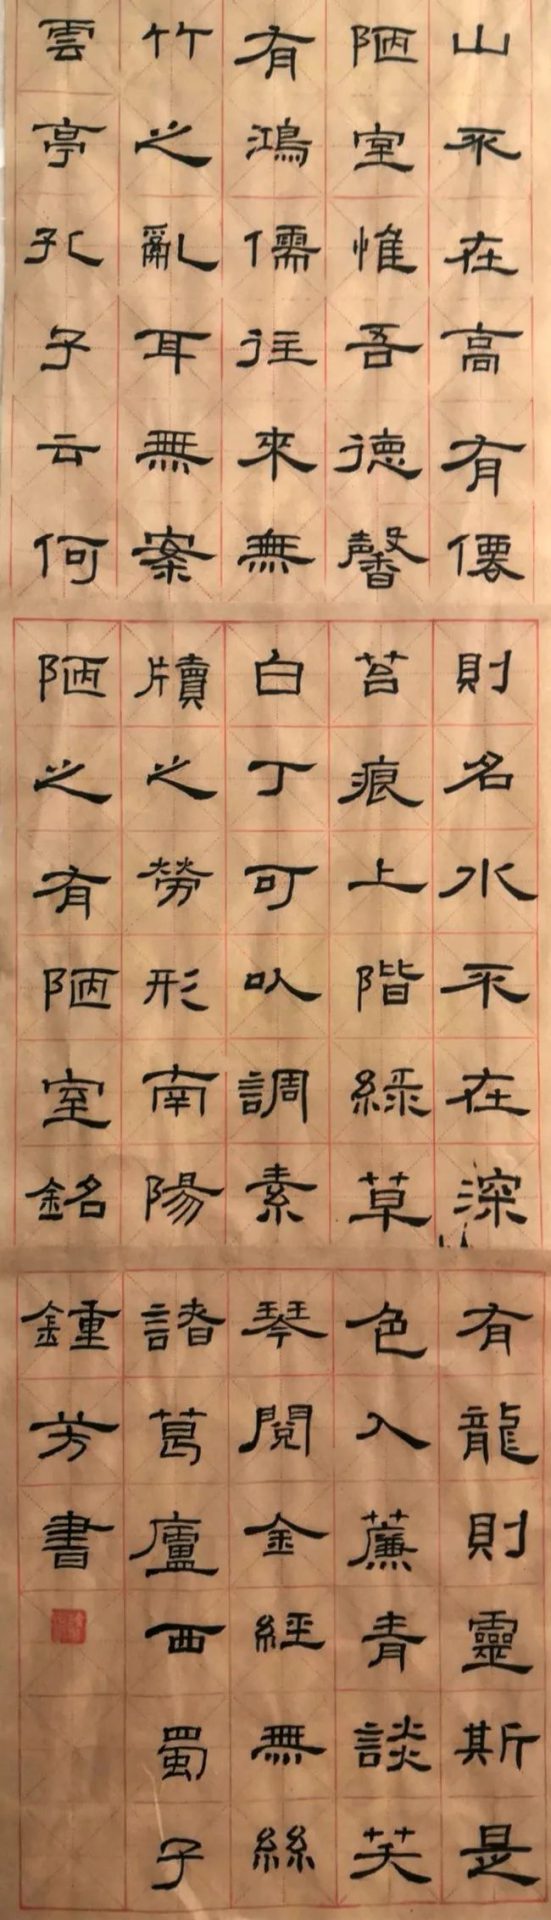 山不在高有僊則名水不在深有龍則靈斯是
陋室惟吾德馨苔痕上階綠草色入薕青談笑
有鴻儒往來無白丁可㕥調素琴閱金經無絲
竹之亂耳無案牘之勞形南陽諸葛廬西蜀子
雲亭孔子云何陋之有陋室銘鍾芳書